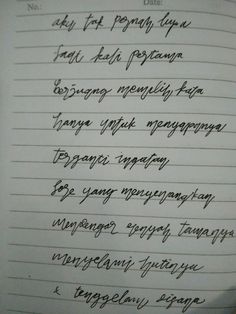 No.: Date:
aku tak pernah lupa
saat kali pertama
berjuang memilih kata
hanya untuk menyapanya
terganti ingatan
sore yang menyenangkan
mendengar renyah tawanya
menyelami hatinya
& tenggelam disana